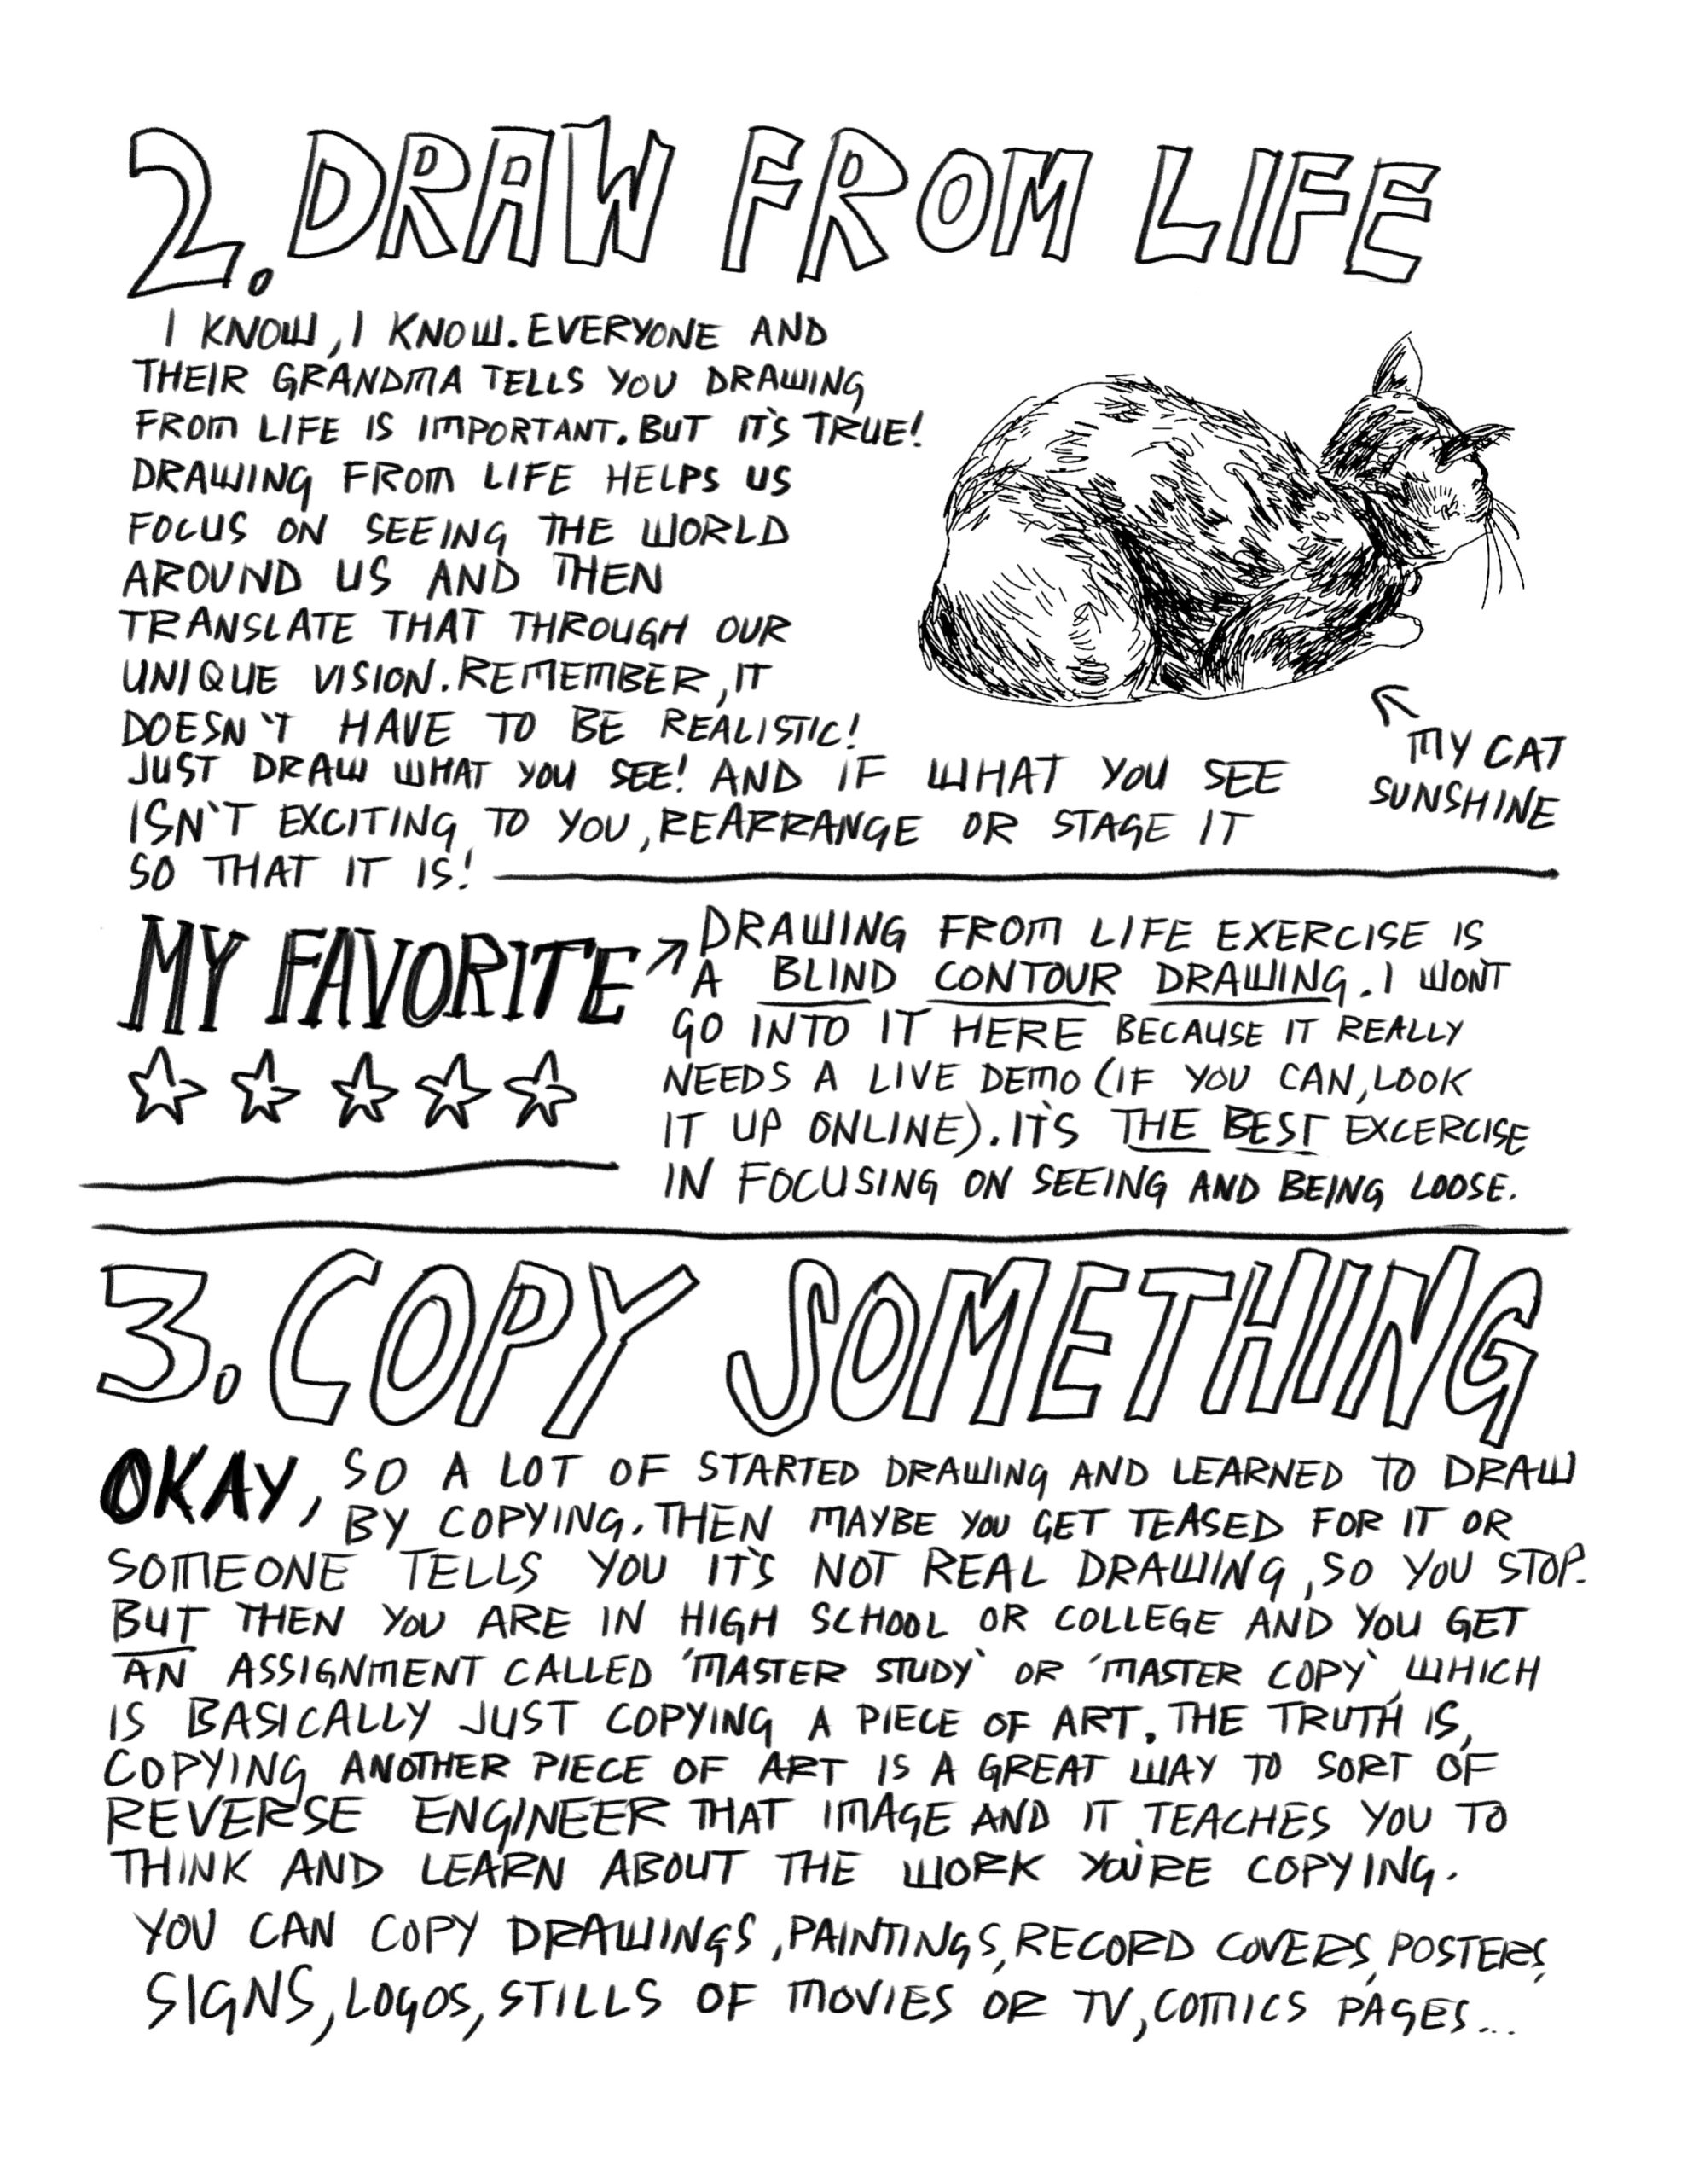 2. DRAW FROM LIFE
I KNOW, I KNOW. EVERYONE AND
THEIR GRANDMA TELLS YOU DRAWING
FROM LIFE IS IMPORTANT. BUT IT'S TRUE!
DRAWING FROM LIFE HELPS US
FOCUS ON SEEING THE WORLD
AROUND US AND THEN
TRANSLATE THAT THROUGH OUR
UNIQUE VISION. REMEMBER, IT
DOESN'T HAVE TO BE REALISTIC!
JUST DRAW WHAT YOU SEE! AND IF WHAT YOU SEE
ISN'T EXCITING TO YOU, REARRANGE OR STAGE IT
SO THAT IT IS!
MY CAT
SUNSHINE
MY FAVORITE
DRAWING FROM LIFE EXERCISE IS
A BLIND CONTOUR DRAWING. I WON'T
GO INTO IT HERE BECAUSE IT REALLY
NEEDS A LIVE DEMO (IF YOU CAN, LOOK
IT UP ONLINE). IT'S THE BEST EXCERCISE
IN FOCUSING ON SEEING AND BEING LOOSE.
3. COPY SOMETHING
OKAY, SO A LOT OF STARTED DRAWING AND LEARNED TO DRAW
BY COPYING. THEN MAYBE YOU GET TEASED FOR IT OR
SOMEONE TELLS YOU IT'S NOT REAL DRAWING, SO YOU STOP.
BUT THEN YOU ARE IN HIGH SCHOOL OR COLLEGE AND YOU GET
AN ASSIGNMENT CALLED 'MASTER STUDY' OR 'MASTER COPY', WHICH
IS BASICALLY JUST COPYING A PIECE OF ART. THE TRUTH IS,
COPYING ANOTHER PIECE OF ART IS A GREAT WAY TO SORT OF
REVERSE ENGINEER THAT IMAGE AND IT TEACHES YOU TO
THINK AND LEARN ABOUT THE WORK YOU'RE COPYING.
YOU CAN COPY DRAWINGS, PAINTINGS, RECORD COVERS, POSTERS,
SIGNS, LOGOS, STILLS OF MOVIES OR TV, COMICS PAGES...